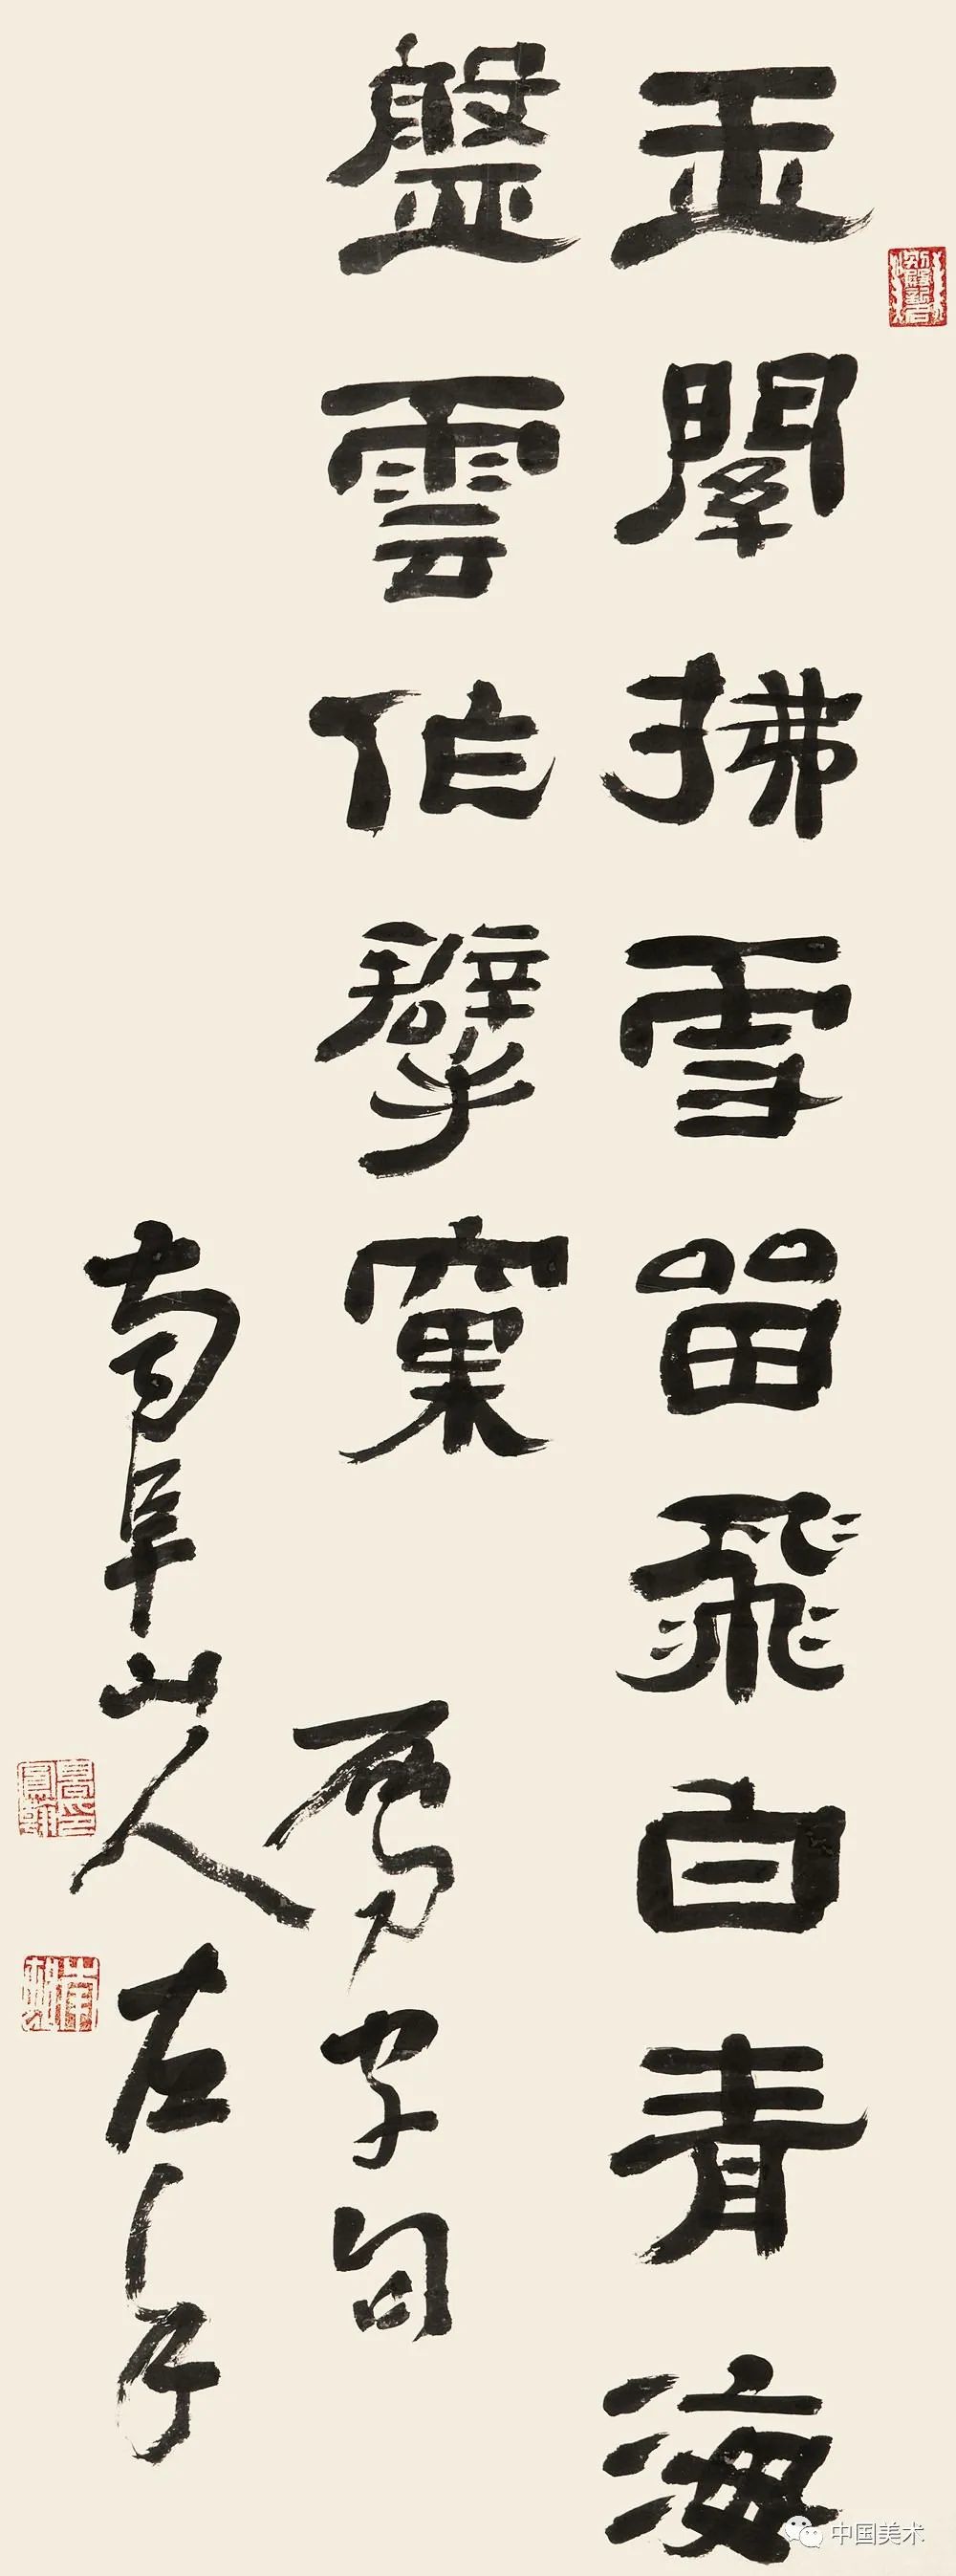 玉關拂雪留飛白青海
盤雲作擘窠 雁字句
南阜山人左手
中国美术